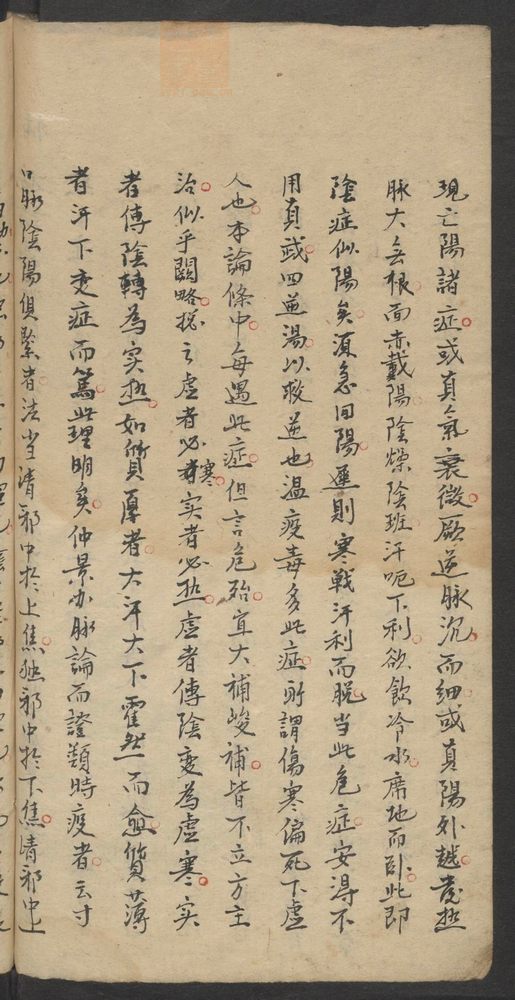 現亡陽諸症或真氣衰微厥逆脉沉而細或真陽外越發热
脉大無根面赤戴陽陰燥陰班汗呃下利欲飲冷水席地而卧此即
陰症似陽矣須急回陽遲則寒戦汗利而脱当此危症安淂不
用真武四逆湯以救逆也温疫毒多此症所謂傷寒偏死下虚
人也本論條中每遇此症但言危殆宜大補峻補皆不立方主
治似乎闕略揔之虚者必寒实者必热虚者傳陰变為虚寒实
者傳陰轉為实热如質厚者大汗大下霍然而愈質薄
者汗下变症而篤此理明矣仲景办脉論而證類時疫者云寸
口脉陰陽俱緊者法当清邪中扵上焦浊邪中扵下焦清邪中上